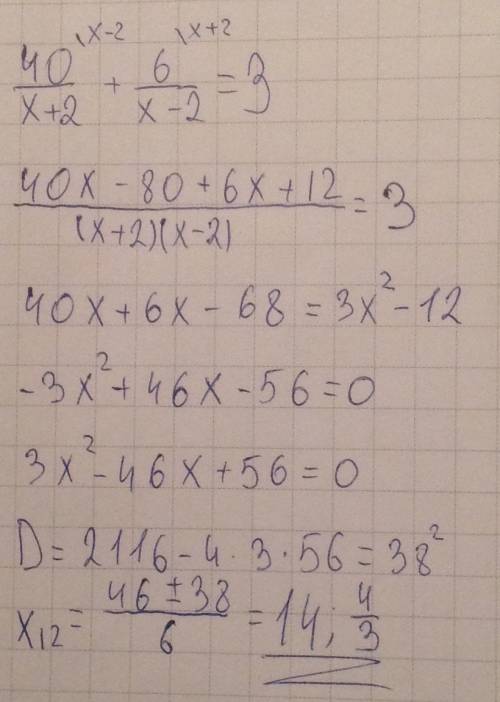 40\x-2/(x+2) + 6\x+2/(x-2) = 3
(40x - 80 + 6x + 12)/((x+2)(x-2)) = 3
40x + 6x - 68 = 3x² - 12
-3x² + 46x - 56 = 0
3x² - 46x + 56 = 0
D = 2116 - 4 · 3 · 56 = 38²
x₁₂ = (46 ± 38)/6 = 14; 4/3